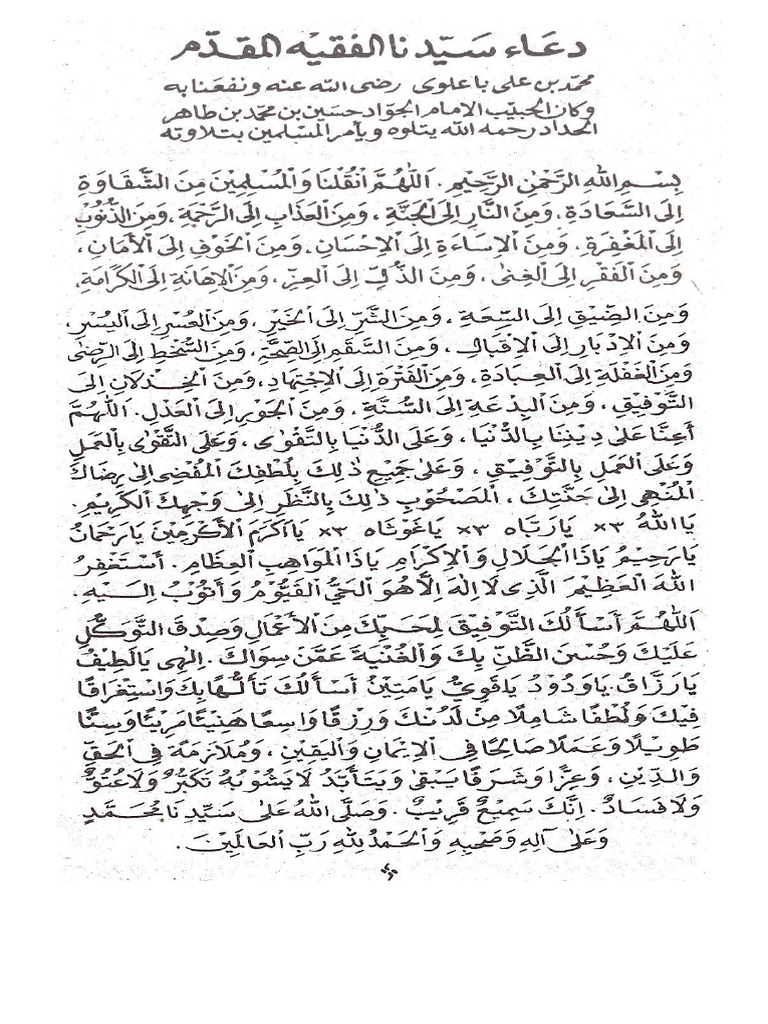 دعَاء سَيّدنا الفقيه المقدّم
محمّد بن على باعلوى رضى الله عنه ونفعَنابه
وكان الحبيب الامام الجوّاد حسَين بن محمّد بن طاهر
الحداد رحمه الله يتلوه ويأمر المسْلمين بتلاوته
بِسْمِ اللهِ الرَّحْمٰنِ الرَّحِيْمِ . اَللّٰهُمَّ انْقُلْنَا وَالْمُسْلِمِيْنَ مِنَ الشَّقَاوَةِ
إِلَى السَّعَادَةِ، وَمِنَ النَّارِ إِلَى الْجَنَّةِ ، وَمِنَ الْعَذَابِ إِلَى الرَّحْمَةِ، وَمِنَ الذُّنُوْبِ
إِلَى الْمَغْفِرَةِ ، وَمِنَ الْاِسَاءَةِ إِلَى الْاِحْسَانِ ، وَمِنَ الْخَوْفِ إِلَى الْأَمَانِ ،
وَمِنَ الْفَقْرِ إِلَى الْغِنٰى ، وَمِنَ الذُّلِّ إِلَى الْعِزِّ ، وَمِنَ الْاِهَانَةِ إِلَى الْكَرَامَةِ ،
وَمِنَ الضِّيْقِ إِلَى السَّعَةِ ، وَمِنَ الشَّرِّ إِلَى الْخَيْرِ ، وَمِنَ الْعُسْرِ إِلَى الْيُسْرِ ،
وَمِنَ الْاِدْبَارِ إِلَى الْاِقْبَالِ ، وَمِنَ السَّقَمِ إِلَى الصِّحَّةِ ، وَمِنَ السُّخْطِ إِلَى الرِّضٰى
وَمِنَ الْغَفْلَةِ إِلَى الْعِبَادَةِ ، وَمِنَ الْفَتْرَةِ إِلَى الْاِجْتِهَادِ ، وَمِنَ الْخِذْلَانِ إِلَى
التَّوْفِيْقِ ، وَمِنَ الْبِدْعَةِ إِلَى السُّنَّةِ ، وَمِنَ الْجَوْرِ إِلَى الْعَدْلِ . اَللّٰهُمَّ
أَعِنَّا عَلٰى دِيْنِنَا بِالدُّنْيَا ، وَعَلَى الدُّنْيَا بِالتَّقْوٰى ، وَعَلَى التَّقْوٰى بِالْعَمَلِ
وَعَلَى الْعَمَلِ بِالتَّوْفِيْقِ ، وَعَلٰى جَمِيْعِ ذٰلِكَ بِلُطْفِكَ الْمُفْضِى إِلٰى رِضَاكَ
الْمُنْهِى إِلٰى جَنَّتِكَ ، الْمَصْحُوْبِ ذٰلِكَ بِالنَّظَرِ إِلٰى وَجْهِكَ الْكَرِيْمِ .
يَا اَللهُ ×٣ يَارَبَّاه ×٣ يَاغَوْثَاه ×٣ يَا اَكْرَمَ الْأَكْرَمِيْنَ يَارَحْمَانُ
يَارَحِيْمُ يَاذَا الْجَلَالِ وَالْاِكْرَامِ يَاذَا الْمَوَاهِبِ الْعِظَامِ . أَسْتَغْفِرُ
اللهَ الْعَظِيْمَ الَّذِى لَا اِلٰهَ اِلَّا هُوَ الْحَيُّ الْقَيُّوْمُ وَأَتُوْبُ إِلَيْهِ .
اَللّٰهُمَّ أَسْأَلُكَ التَّوْفِيْقَ لِمَحَبِّكَ مِنَ الْأَعْمَالِ وَصِدْقَ التَّوَكُّلِ
عَلَيْكَ وَحُسْنَ الظَّنِّ بِكَ وَالْغُنْيَةَ عَمَّنْ سِوَاكَ . اِلٰهِى يَالَطِيْفُ
يَارَزَّاقُ يَاوَدُوْدُ يَاقَوِيُّ يَامَتِيْنُ أَسْأَلُكَ تَأَلُّهًا بِكَ وَاسْتِغْرَاقًا
فِيْكَ وَلُطْفًا شَامِلًا مِنْ لَدُنْكَ وَرِزْقًا وَاسِعًا هَنِيْئًا مَرِيْئًا وَسِنًّا
طَوِيْلًا وَعَمَلًا صَالِحًا فِى الْاِيْمَانِ وَالْيَقِيْنِ ، وَمُلَازَمَةً فِى الْحَقِّ
وَالدِّيْنِ ، وَعِزًّا وَشَرَفًا يَبْقٰى وَيَتَأَبَّدُ لَا يَشُوْبُهُ تَكَبُّرٌ وَلَا عُتُوٌّ
وَلَا فَسَادٌ . اِنَّكَ سَمِيْعٌ قَرِيْبٌ . وَصَلَّى اللهُ عَلٰى سَيِّدِنَا مُحَمَّدٍ
وَعَلٰى آلِهِ وَصَحْبِهِ وَالْحَمْدُ لِلّٰهِ رَبِّ الْعَالَمِيْنَ .